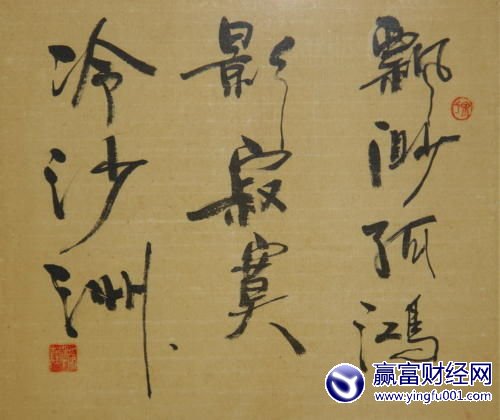 飄渺孤鴻
影寂寞
冷沙洲
赢富财经网
www.yingfu001.com